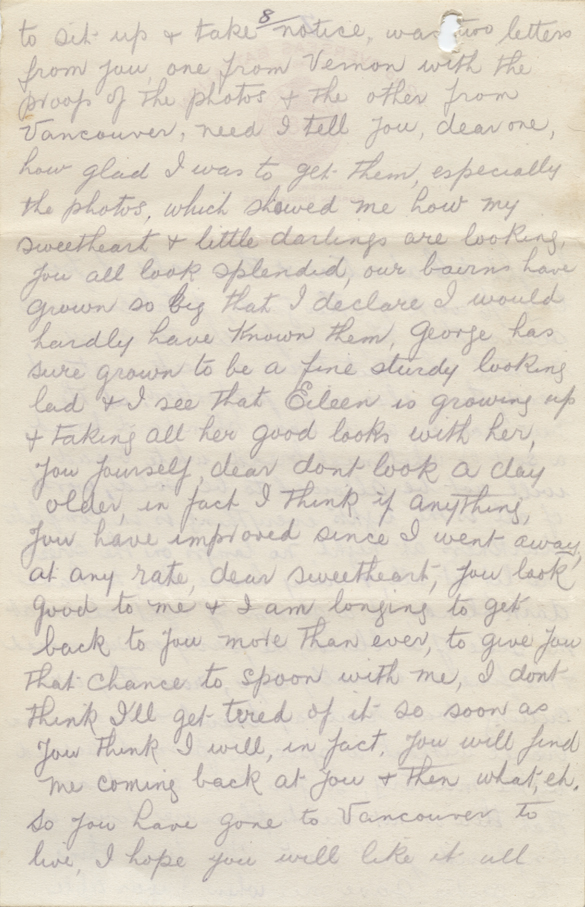 8
to sit up & take notice, was two letters
from you, one from Vernon with the
proofs of the photos & the other from
Vancouver, need I tell you, dear one,
how glad I was to get them, especially
the photos, which showed me how my
sweetheart & little darlings are looking,
you all look splendid, our bairns have
grown so big that I declare I would
hardly have known them, George has
sure grown to be a fine sturdy looking
lad & I see that Eileen is growing up
& taking all her good looks with her,
you yourself, dear dont look a day
older, in fact I think if anything,
you have improved since I went away,
at any rate, dear sweetheart, you look
good to me & I am longing to get
back to you more than ever, to give you
that chance to, spoon with me, I dont
think I'll get tired of it so soon as
you think I will, in fact, you will find
me coming back at you & then what, eh.
so you have gone to Vancouver to
live, I hope you will like it all